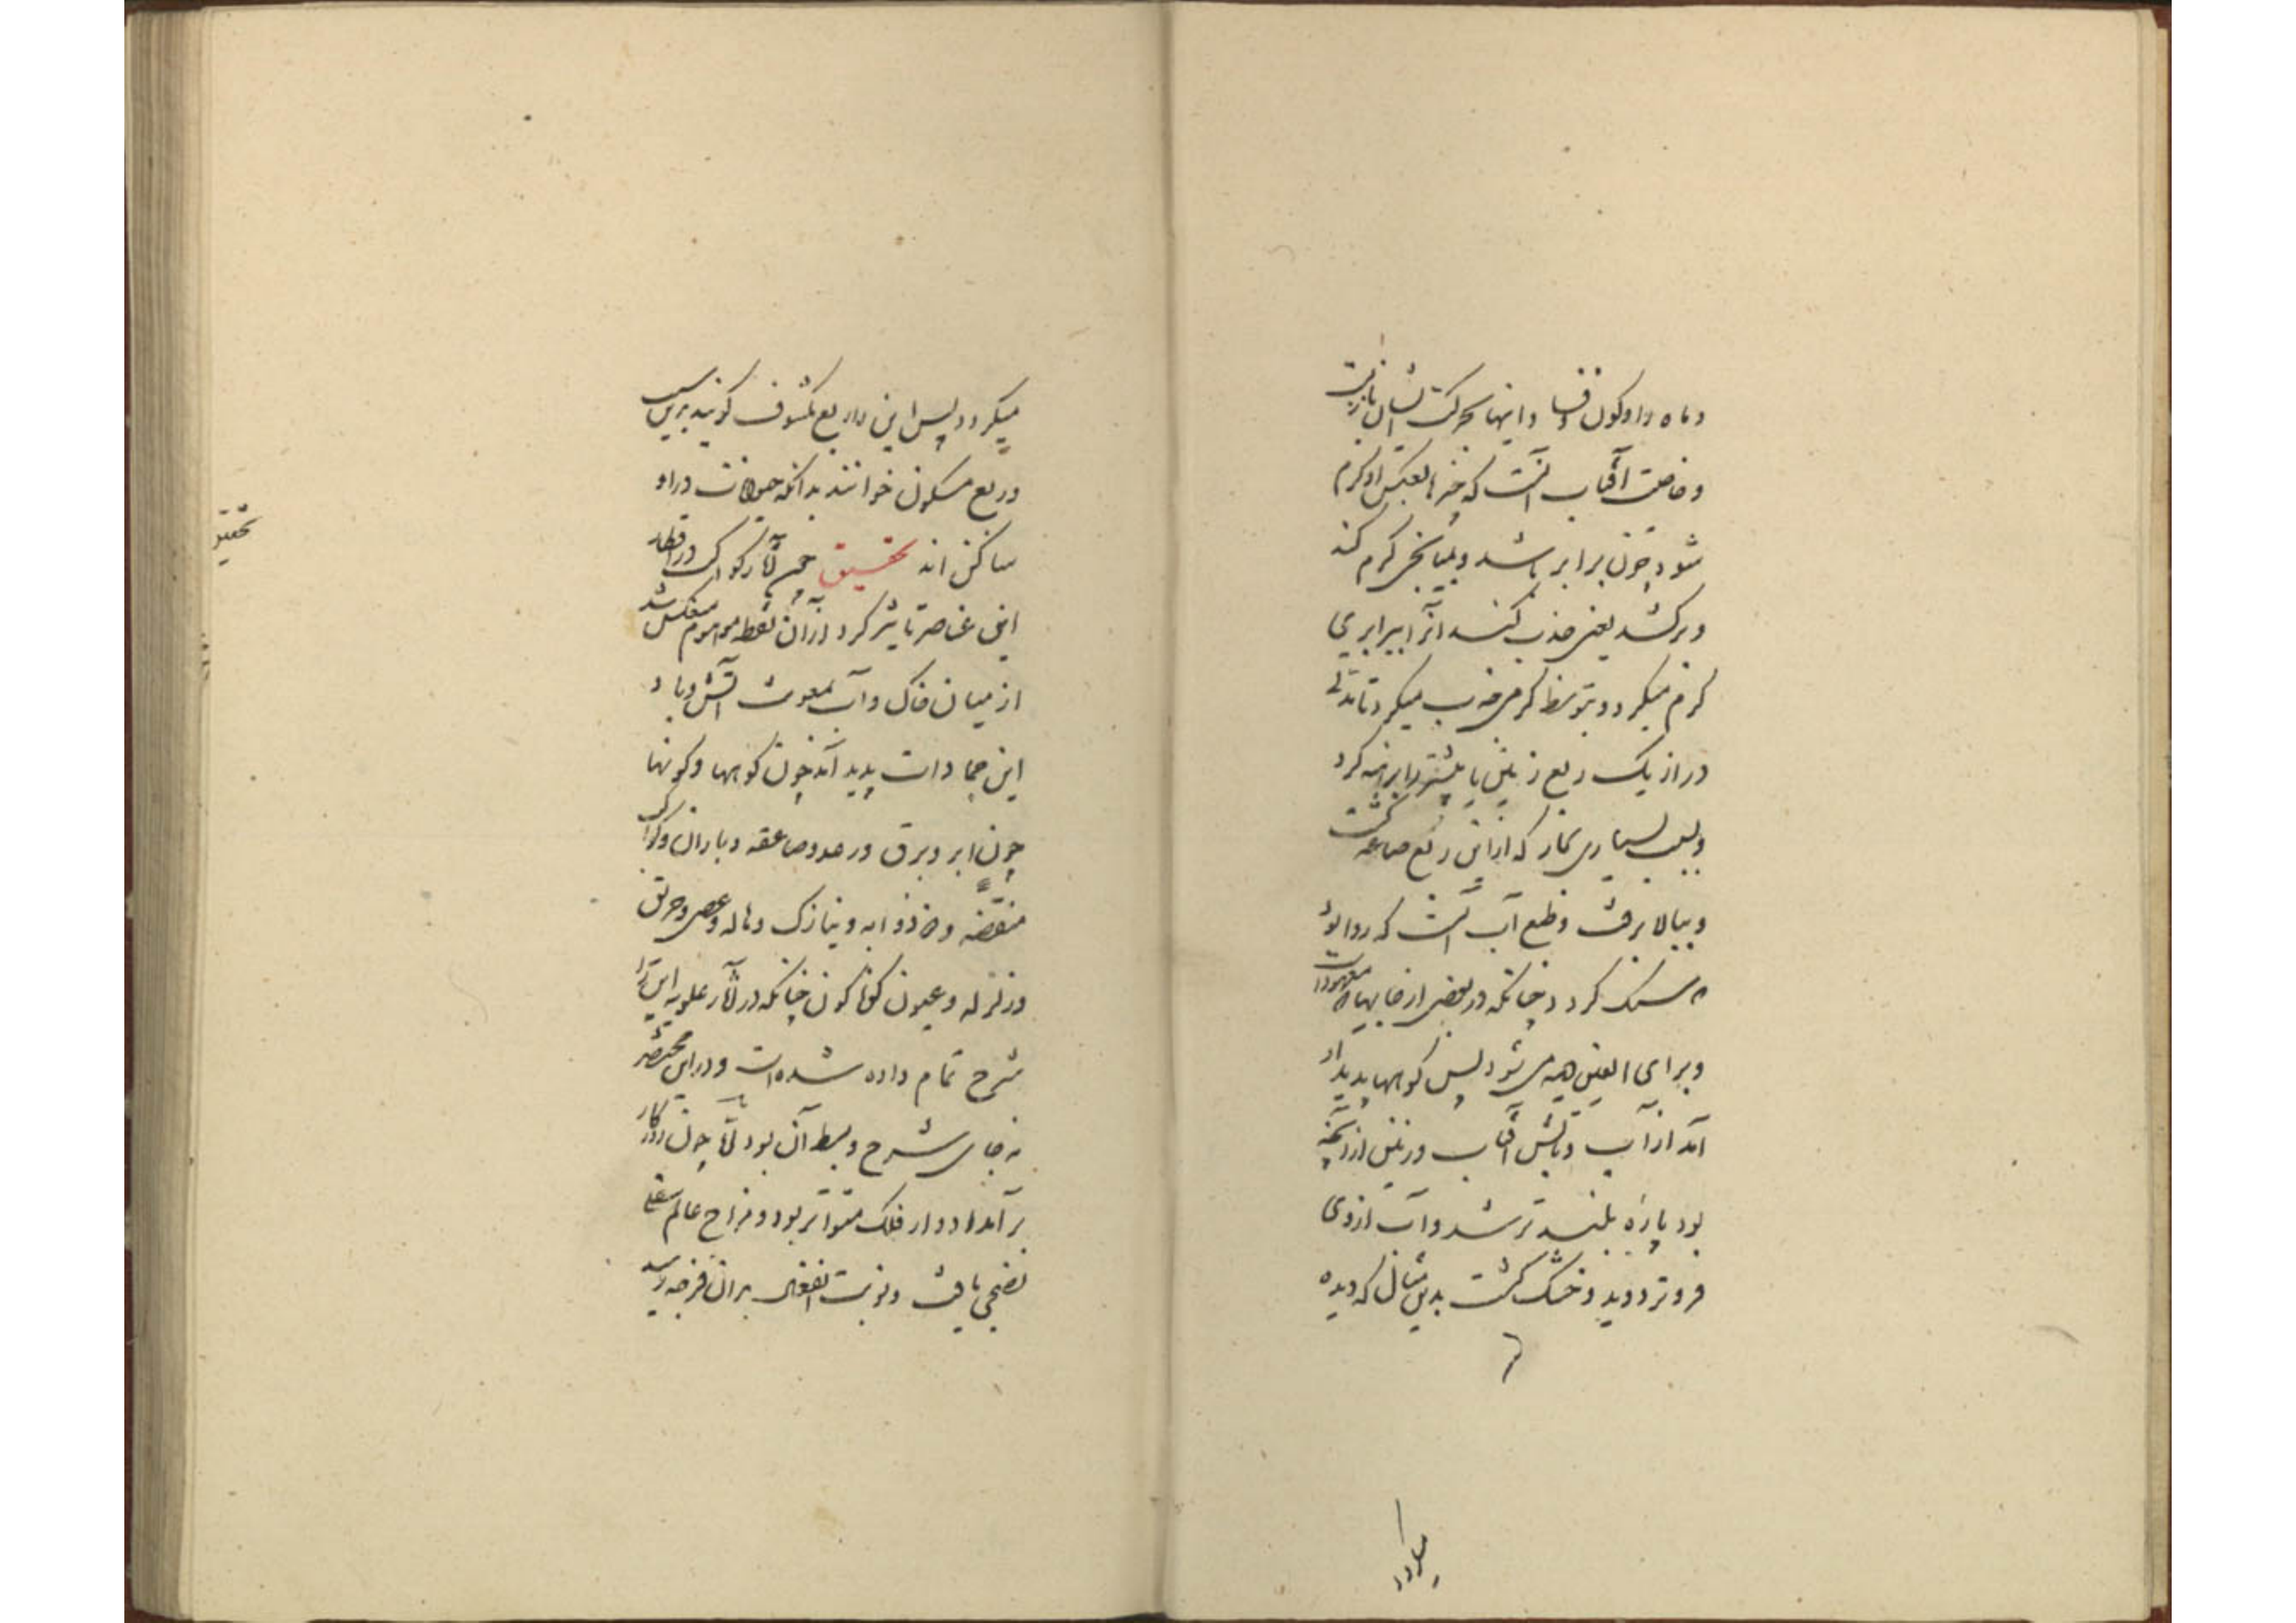 و ماه را و کون و فساد و اینها بحرکت ایشان باز بست
و خاصیت آفتاب آنست که چیزها بعکس او گرم
شود چون برابر باشد و بمیانجی گرمی کند
و برکشد یعنی جذب کند آنرا ببرابری
گرم میکرد و بتوسط گرمی جذب میکرد تا بمدتی
دراز یک ربع زمین یا بیشتر برابر
و بسبب بسیاری بخار که ازین ربع متصاعد گشت
و ببالا برفت و طبع آب آنست که روا بود
که سنگ گردد چنانکه در بعضی از جایها معهود است
و برای العین همی شود پس کوهها پدیدار
آمد از آب و تابش آفتاب و زمین از آنچه
بود پاره بلندتر شد و آب از وی
فروتر دوید و خشک گشت بدین مثال که دیده
میکردد
میکردد پس این را ربع مکشوف گویند بدین سبب
و ربع مسکون خوانند بدانکه حیوانات در او
ساکن اند تحقیق چون آثار کواکب در اقطار
این عناصر تاثیر کرد و از آن نقطه موهوم منعکس شد
از میان خاک و آب بمعونت آتش و باد
این جمادات پدید آمد چون کوهها و کونها
چون ابر و برق و رعد و صاعقه و باران و کواکب
منقضه و ذو ذوابه و نیازک و هاله و عصی و حریق
و زلزله و عیون گوناگون چنانکه در آثار علویه این را
شرح تمام داده شده است و در این مختصر
نه جای شرح و بسط آن بود اما چون روزگار
برآمد ادوار فلک متواتر بود و مزاج عالم سفلی
نضجی یافت و نوبت انفعال بران فرجه رسید
تحقیق